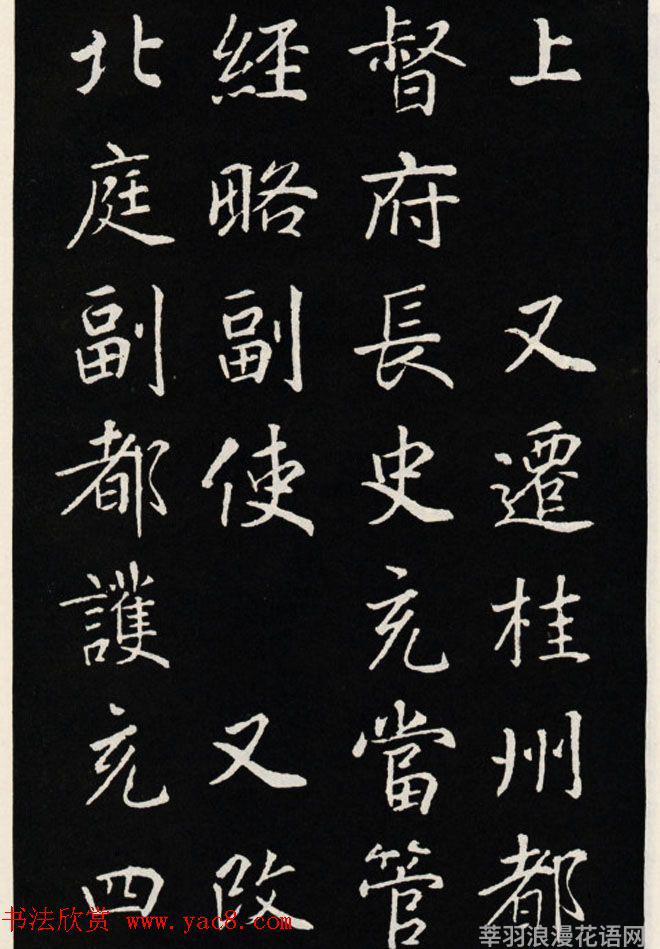 上 又遷桂州都
督府長史充當管
經略副使 又改
北庭副都護充四
书法欣赏 www.yac8.com
莘羽浪漫花语网